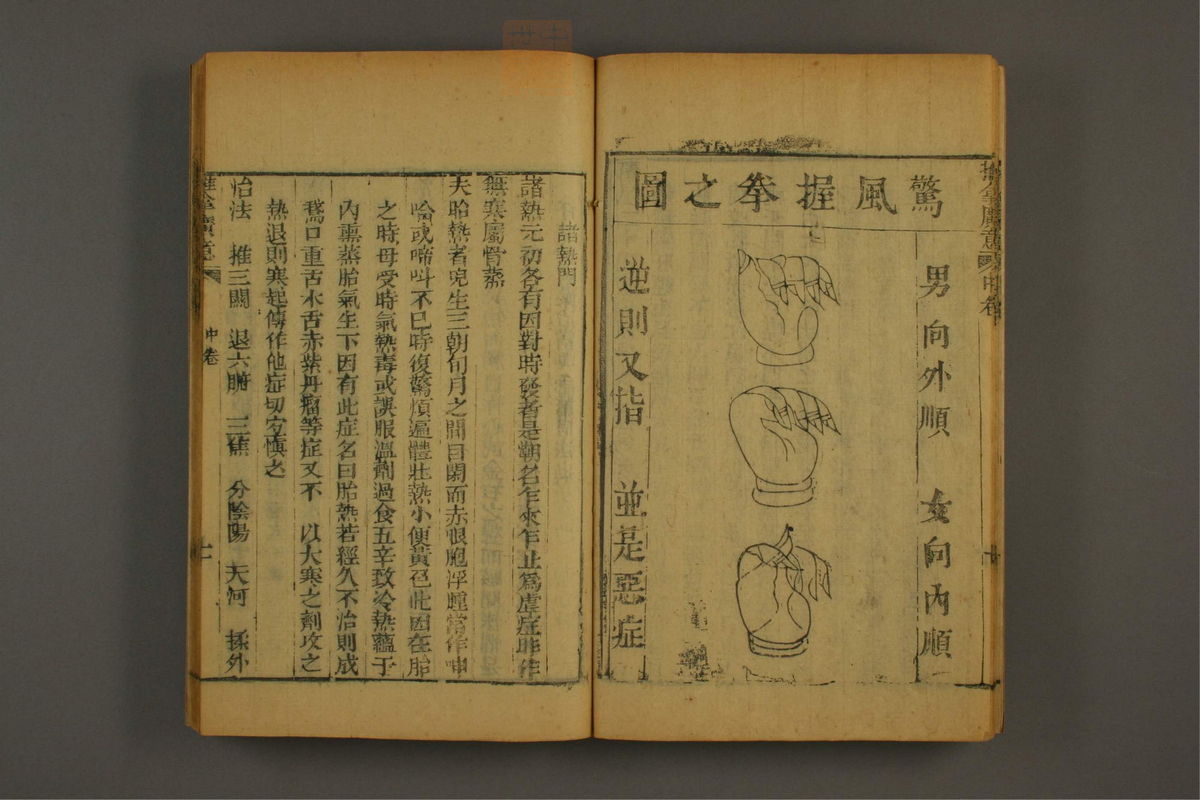 驚風握拳之圖
男向外順　女向內順
逆則又指　並是惡症
諸熱門
諸熱元初各有因對時發者是潮名乍來乍止爲虛症昨作
無寒屬骨蒸
夫胎熱者兒生三朝旬月之間目閉而赤眼胞浮腫常作呻
吟或啼叫不已時復驚煩遍體壯熱小便黃色此因在胎
之時母受時氣熱毒或誤服溫劑過食五辛致令熱蘊于
內熏蒸胎氣生下因有此症名曰胎熱若經久不治則成
鵞口重舌木舌赤紫丹瘤等症又不　以大寒之劑攻之
熱退則寒起傳作他症切宜慎之
治法　推三關　退六腑　三焦　分陰陽　天河　揉外
推拿廣意
中卷